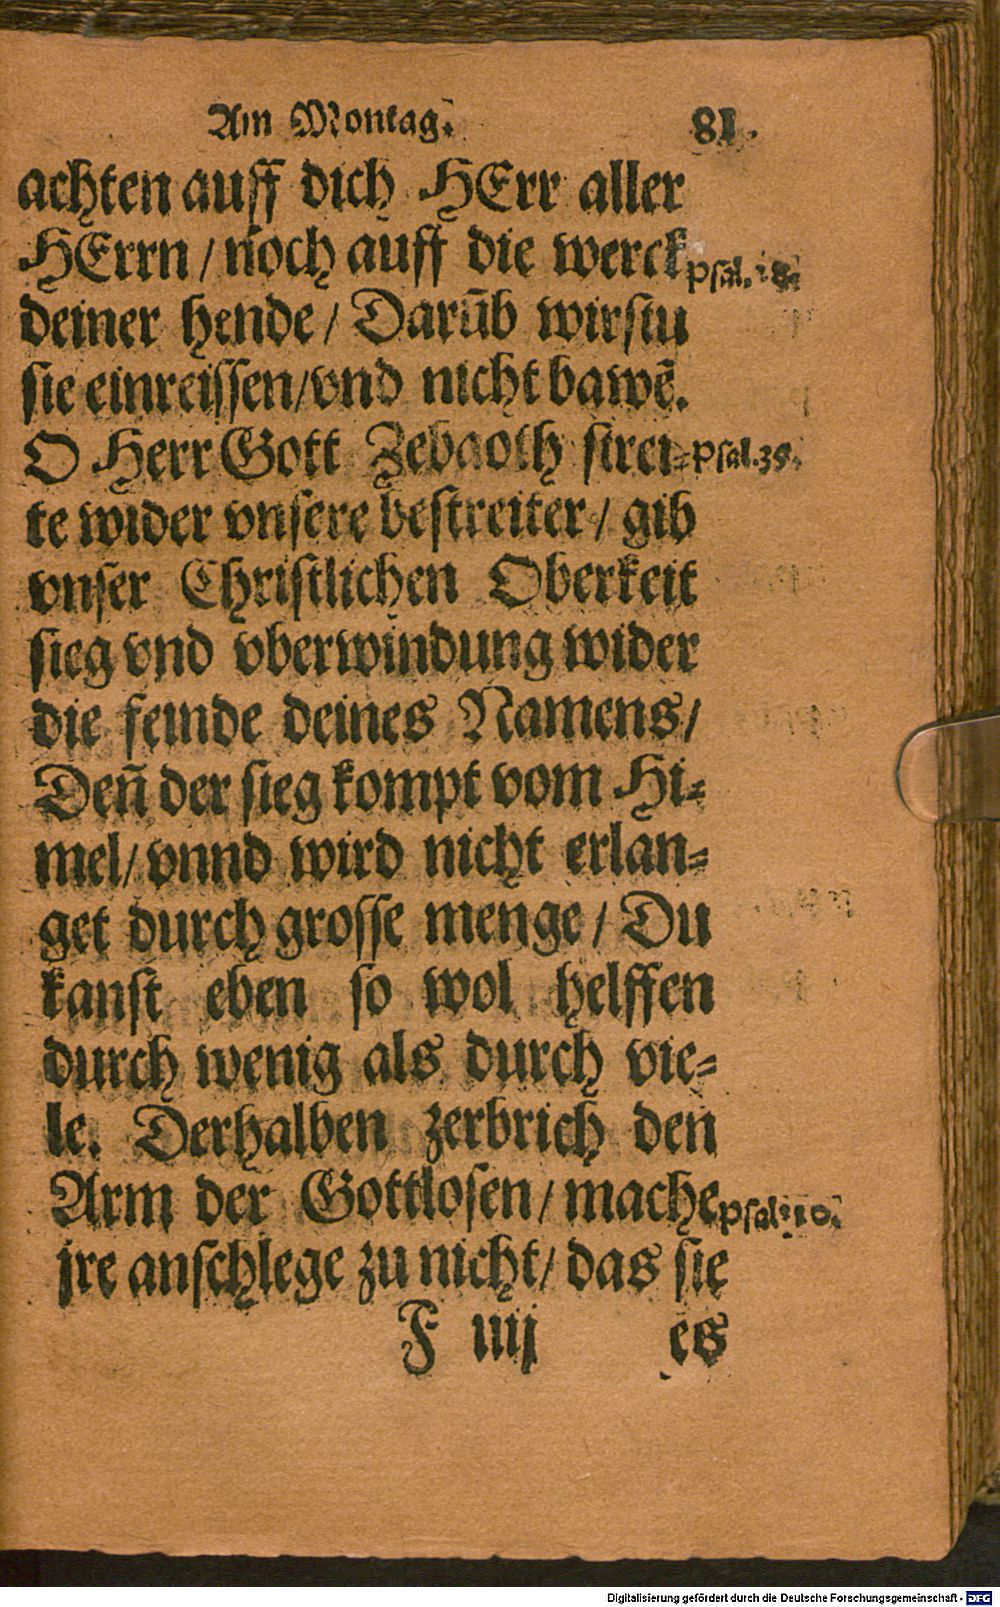 Am Montag. 81.
achten auff dich HErr aller
HErrn / noch auff die werck
deiner hende / Darũb wirstu
sie einreissen / vnd nicht bawẽ.
O Herr Gott Zebaoth strei= Psal. 35.
te wider vnsere bestreiter / gib
vnser Christlichen Oberkeit
sieg vnd vberwindung wider
die feinde deines Namens /
Deñ der sieg kompt vom Hi=
mel / vnnd wird nicht erlan=
get durch grosse menge / Du
kanst eben so wol helffen
durch wenig als durch vie=
le. Derhalben zerbrich den
Arm der Gottlosen / mache Psal. 10.
jre anschlege zu nicht / das sie
F iiij es
Digitalisierung gefördert durch die Deutsche Forschungsgemeinschaft - DFG